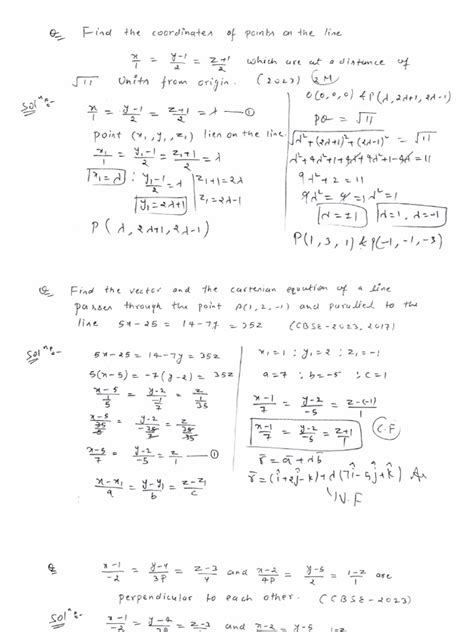 Q Find the coordinates of points on the line
x/1 = y-1/2 = z+1/2 which are at a distance of
√11 units from origin. (2023) 2M
Solⁿ:- x/1 = y-1/2 = z+1/2 = λ —①
point (x₁, y₁, z₁) lies on the line.
x₁/1 = y₁-1/2 = z₁+1/2 = λ
x₁ = λ ; y₁-1/2 = λ | z₁+1 = 2λ
y₁ = 2λ+1 | z₁ = 2λ-1
P(λ, 2λ+1, 2λ-1)
O(0,0,0) & P(λ, 2λ+1, 2λ-1)
PO = √11
√λ²+(2λ+1)²+(2λ-1)² = √11
λ²+4λ²+1+4λ+4λ²+1-4λ = 11
9λ²+2 = 11
9λ² = 9 λ² = 1
λ = ±1 λ=1, λ=-1
P(1, 3, 1) & P(-1, -1, -3)
Q Find the vector and the cartesian equation of a line
passes through the point A(1, 2, -1) and parallel to the
line 5x-25 = 14-7y = 35z (CBSE-2023, 2017)
Solⁿ:- 5x-25 = 14-7y = 35z
5(x-5) = -7(y-2) = 35z
x-5/1/5 = y-2/-1/7 = z/1/35
x-5/35/5 = y-2/-35/7 = z/35/35
x-5/7 = y-2/-5 = z/1 —①
x-x₁/a = y-y₁/b = z-z₁/c
x₁=1 ; y₁=2 ; z₁=-1
a=7 ; b=-5 ; c=1
x-1/7 = y-2/-5 = z-(-1)/1
x-1/7 = y-2/-5 = z+1/1 C.F
r̄ = ā + λb̄
r̄ = (î+2ĵ-k̂)+λ(7î-5ĵ+k̂)
V.F
Q x-1/-2 = y-4/3P = z-3/4 and x-2/4P = y-5/2 = 1-z/1 are
perpendicular to each other. (CBSE-2023)
Solⁿ:-